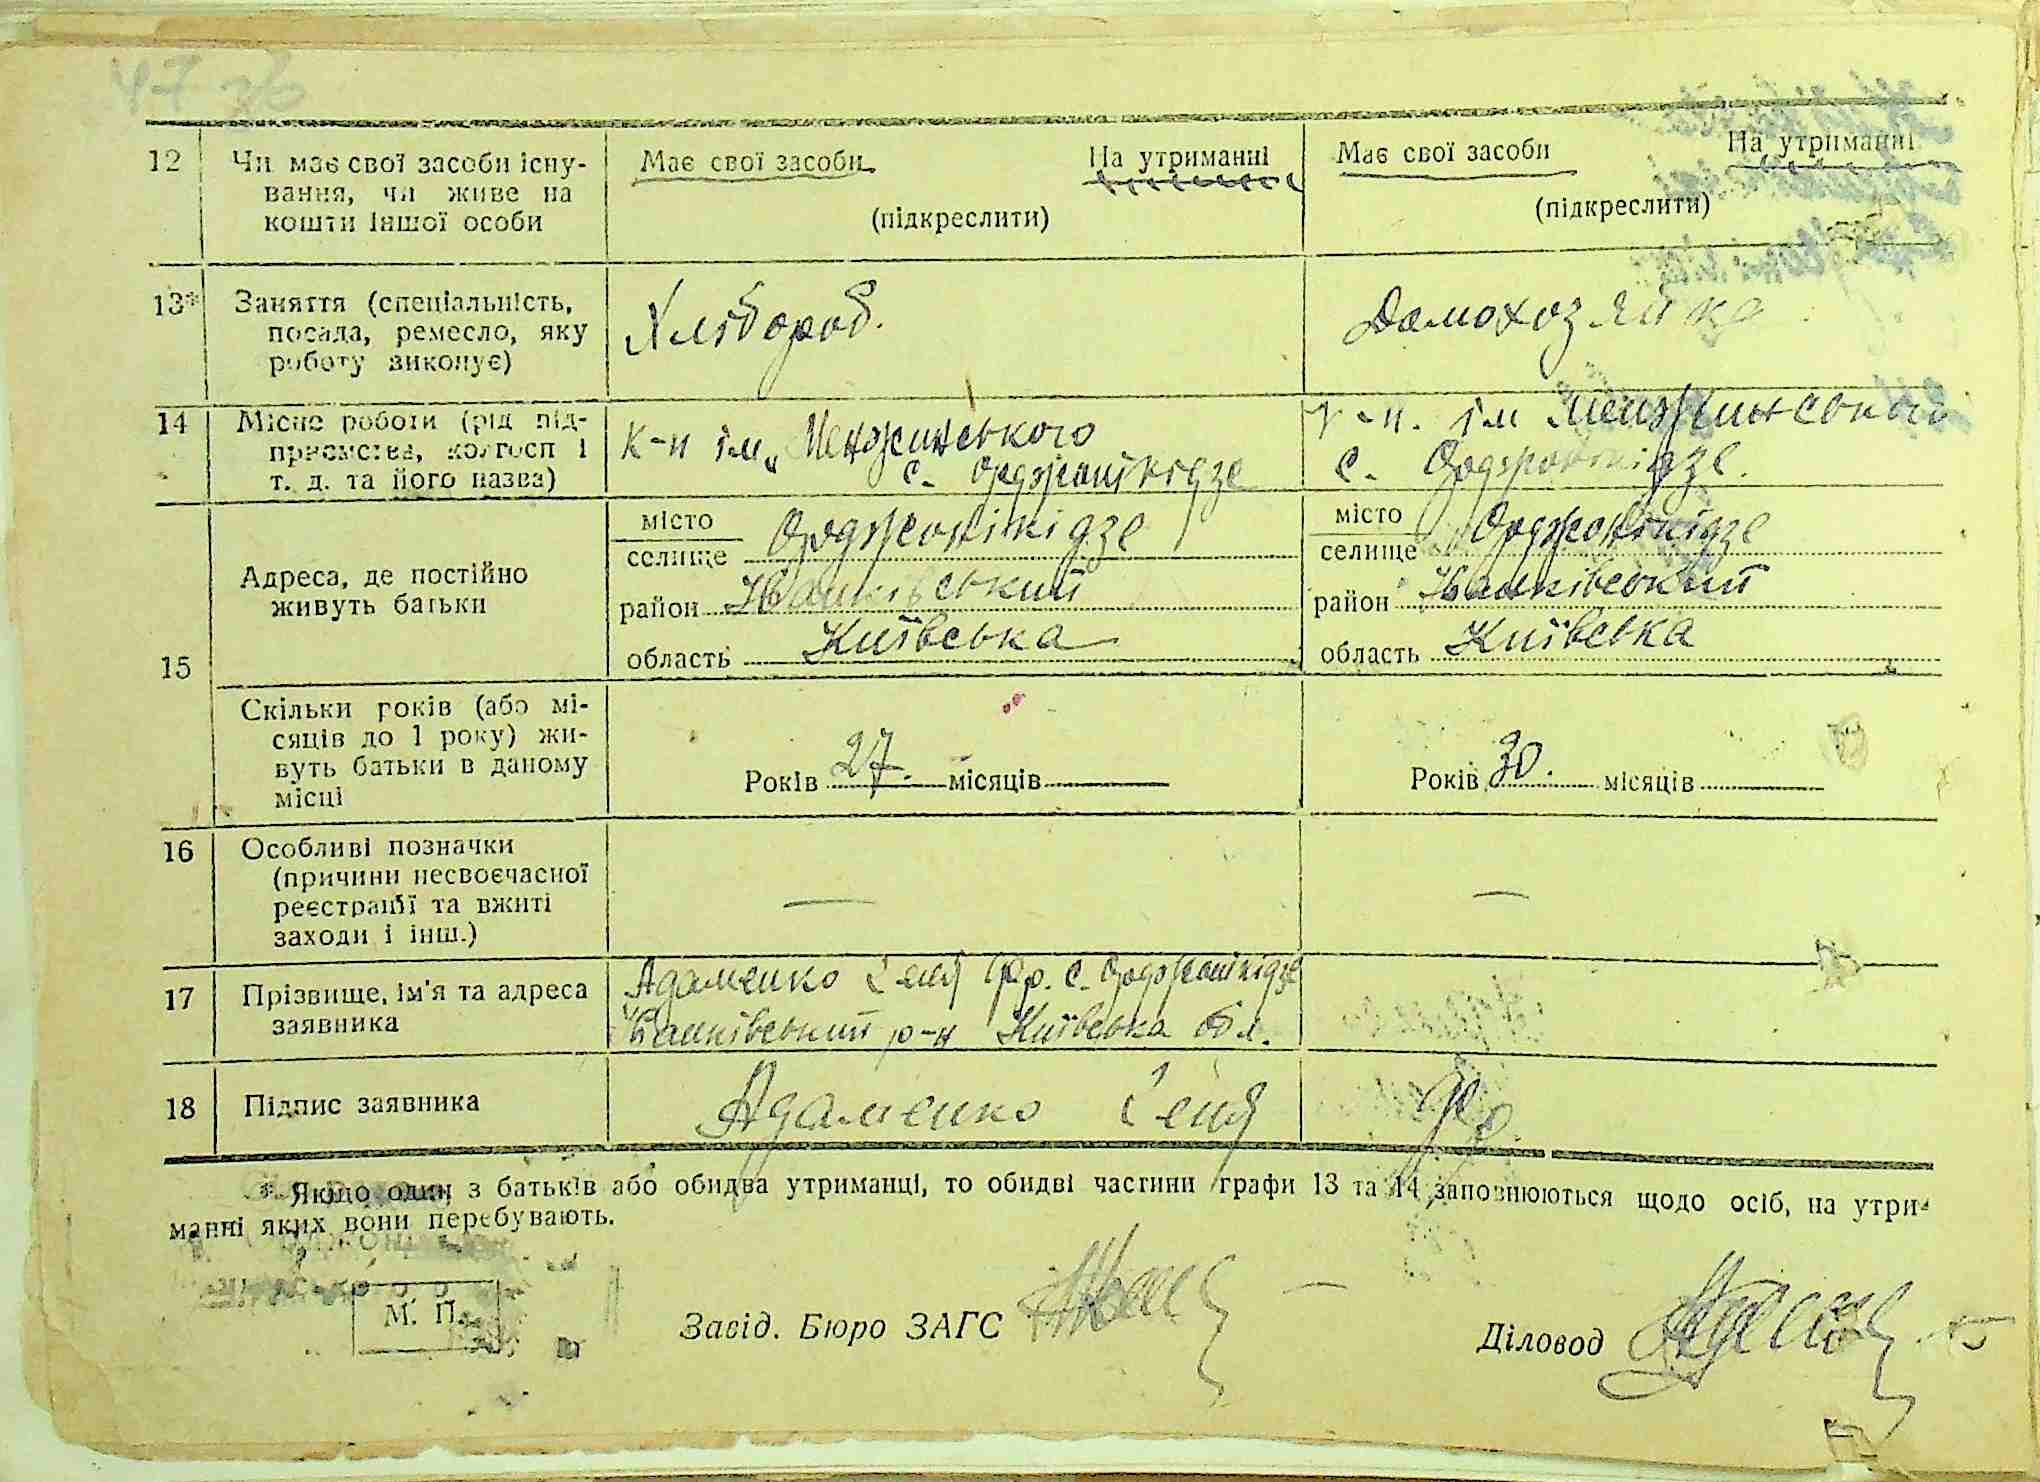 47 зв
12 Чи має свої засоби існу-
вання, чи живе на
кошти іншої особи
Має свої засоби На утриманні
(підкреслити)
Має свої засоби На утриманні
(підкреслити)
13* Заняття (спеціальність,
посада, ремесло, яку
роботу виконує)
Хлібороб.
Домохозяйка
14 Місце роботи (рід під-
приємства, колгосп і
т. д. та його назва)
К-п ім. Менжинського
с. Орджонікідзе
к-п. ім Менжинського
с. Орджонікідзе.
15 Адреса, де постійно
живуть батьки
місто
селище Орджонікідзе
район Іванківський
область Київська
місто
селище Орджонікідзе
район Іванківський
область Київська
Скільки років (або мі-
сяців до 1 року) жи-
вуть батьки в даному
місці
Років 27. місяців
Років 30. місяців
16 Особливі позначки
(причини несвоєчасної
реєстрації та вжиті
заходи і інш.)
—
—
17 Прізвище, ім'я та адреса
заявника
Адаменко Євгей Фр. с. Орджонікідзе
Іванківський р-н Київська обл.
18 Підпис заявника
Адаменко
* Якщо один з батьків або обидва утриманці, то обидві частини графи 13 та 14 заповнюються щодо осіб, на утри-
манні яких вони перебувають.
М. П.
Завід. Бюро ЗАГС
Діловод